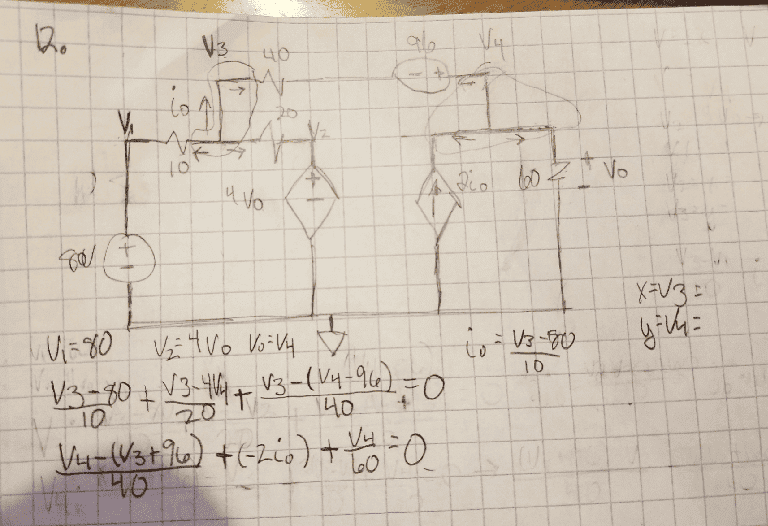 12.
V3
40
96
V4
- +
io
V1
20
V2
10
+
-
4V0
2io
60
+
-
V0
80V
+
-
x=V3=
y=V4=
V1=80 V2=4V0 V0=V4 io = V3-80/10
V3-80/10 + V3-4V4/20 + V3-(V4-96)/40 = 0
V4-(V3+96)/40 + (-2io) + V4/60 = 0